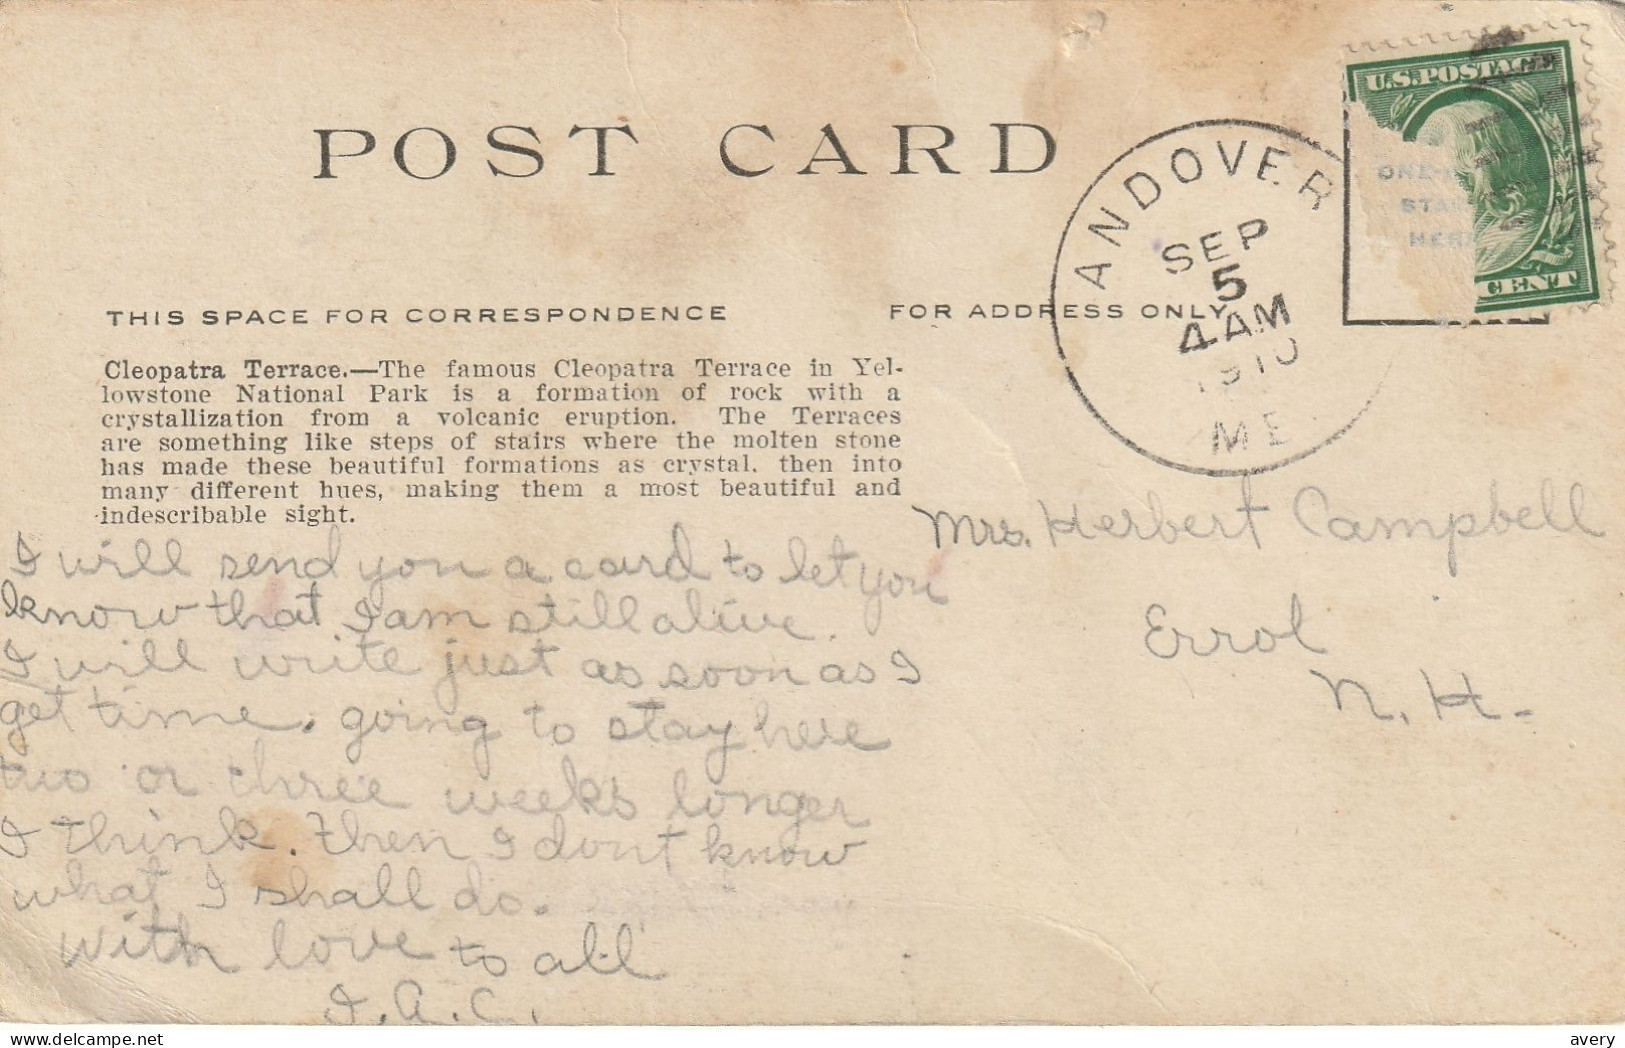 POST CARD
U.S. POSTAGE
CENT
ONE-
STA
HER
ANDOVER
SEP
5
4 AM
1910
ME
THIS SPACE FOR CORRESPONDENCE
FOR ADDRESS ONLY
Cleopatra Terrace.—The famous Cleopatra Terrace in Yel-
lowstone National Park is a formation of rock with a
crystallization from a volcanic eruption. The Terraces
are something like steps of stairs where the molten stone
has made these beautiful formations as crystal, then into
many different hues, making them a most beautiful and
indescribable sight.
I will send you a card to let you
know that I am still alive.
I will write just as soon as I
get time. going to stay here
two or three weeks longer
I think. then I dont know
what I shall do.
With love to all
I.A.C.
Mrs. Herbert Campbell
Errol
N.H.
delcampe.net
avery